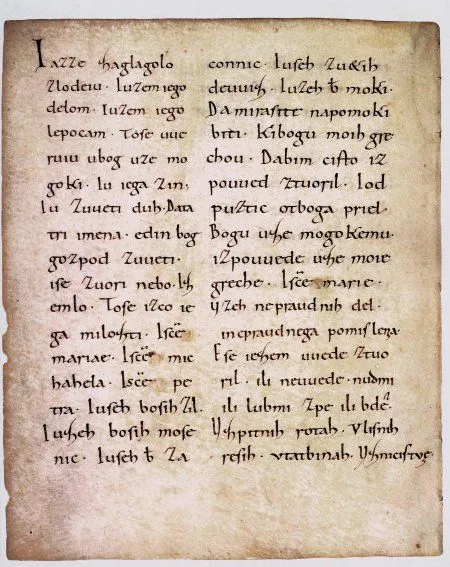 Iazze zaglagolo
zlodeiu. Iuzem iego
delom. Iuzem iego
lepocam. Tose uue
ruiu ubog uze mo
goki. Iu iega zin;
Iu zuueti duh. Data
tri imena. edin bog
gozpod zuueti.
ise zuori nebo. Iz
emlo. Tose izco ie
ga milozti. Isc̄e
mariae. Isc̄e mic
hahela. Isc̄e pe
tra. Iuseh bosih zil.
Iuzeh bosih mose
nic. Iuseh b̄ za
connic. Iuseh zu&ih
deuuiz. Iuzeh b̄ moki.
Damirasite napomoki
biti. Kibogu moih gre
chou. Dabim cisto iz
pouued ztuoril. Iod
puztic otboga priel.
Bogu uze mogokemu.
izpouuede uze moie
greche. Isc̄e marie.
uzeh nepraudnih del.
inepraudnega pomislena.
Ese iezem uuede ztuo
ril. ili neuuede. nudmi
ili lubmi zpe ili bde.
Uzpitnih rotah. Vlisnih
resih. Vtatbinah. Uznicistuoe.